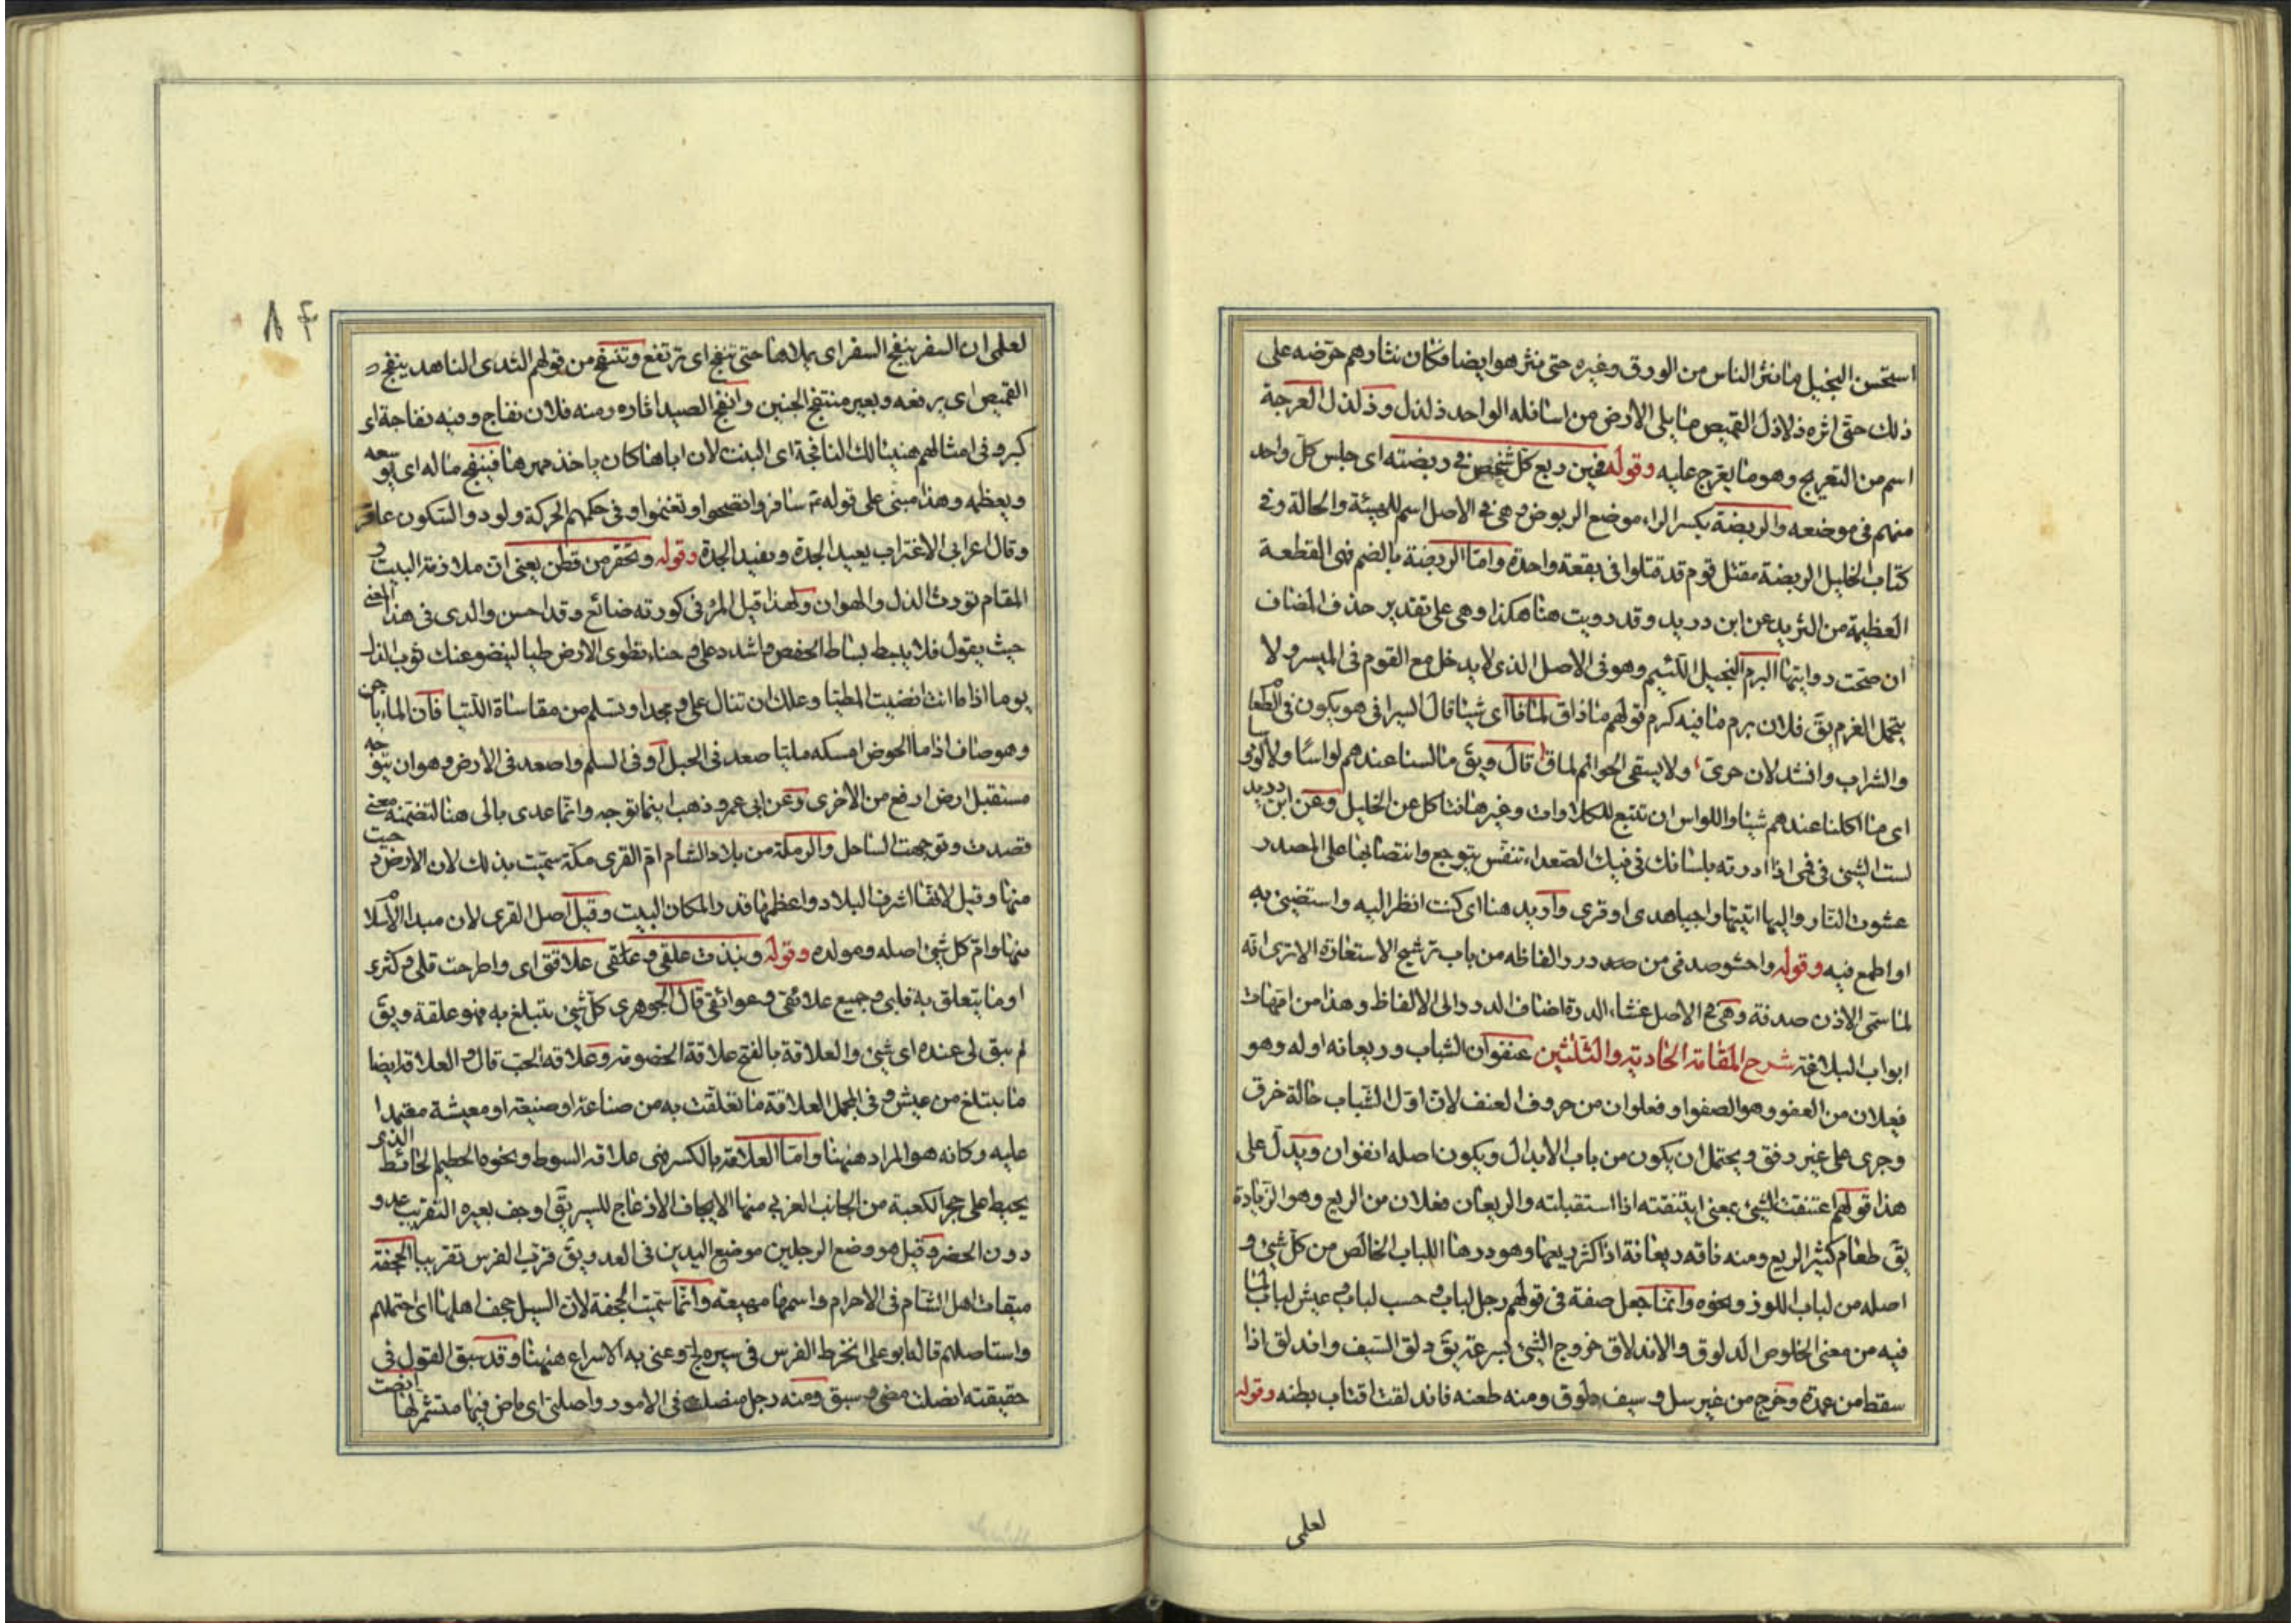 استحسن البخيل ما نثر الناس من الورق وغيره حتى نثر هو ايضا فكان نثارهم حرّضه على
ذلك حتى اثره ذلاذل القميص ما يلى الارض من اسافله الواحد ذلذل وذلذل العرجة
اسم من التعريج وهو ما يعرج عليه وقوله فحين ربع كل شخص فى ربضته اى جلس كل واحد
منهم فى موضعه والربضة بكسر الراء موضع الربوض وهى فى الاصل اسم للهيئة والحالة وفى
كتاب الخليل الربضة مقتل قوم قد قتلوا فى بقعة واحدة وامّا الربضة بالضم فهى القطعة
العظيمة من الثريد عن ابن دريد وقد رويت هنا هكذا وهى على تقدير حذف المضاف
ان صحت روايتها البرم البخيل اللئيم وهو فى الاصل الذى لا يدخل مع القوم فى الميسر ولا
يتحمل الغرم يق فلان برم ما فيه كرم قولهم ما ذاق لماقا اى شيئا قال السيرافى هو يكون فى الطعام
والشراب وانشد لابن حرى ولا يسقى الحوائم لماقا قال ويق ما لسنا عندهم لواسا ولا
اى ما اكلنا عندهم شيئا واللواس ان تتبع للكلاوات وغيرها فتاكل عن الخليل وعن ابن دريد
لست الشئ فى فمى اذا ادرته بلسانك فى فيك الصعداء تنفس بتوجع وانتصابها على المصدر
عشوت النار واليها اتيتها واجيا هدى او قرى واريد هنا اى كنت انظر اليه واستضئ به
او اطمع فيه وقوله واحشو صدفى من درر الفاظه من باب ترشيح الاستعارة الا ترى انه
لما سمى الاذن صدفة وهى فى الاصل غشاء الدرة اضاف الدرر الى الالفاظ وهذا من امهات
ابواب البلاغة شرح المقامة الحادية والثلثين عنفوان الشباب وريعانه اوله وهو
فعلان من العفو وهو الصفو او فعلوان من حروف العنف لان اوّل الشباب حالة خرق
وجرى على غير رفق ويحتمل ان يكون من باب الابدال ويكون اصله انفوان ويدلّ على
هذا قولهم اعتنفت الشئ بمعنى ايتنفته اذا استقبلته والريعان فعلان من الريع وهو الزيادة
يق طعام كثير الريع ومنه ناقه ريعانة اذا كثر ريعها وهو درها اللباب الخالص من كل شئ و
اصله من لباب اللوز ونحوه وانما جعل صفة فى قولهم رجل لباب وحسب لباب وعيش لباب لما
فيه من معنى الخلوص الدلوق والاندلاق خروج الشئ بسرعة يق دلق السيف واندلق اذا
سقط من غمده وخرج من غير سل وسيف دلوق ومنه طعنه فاندلقت اقتاب بطنه وقوله
لعلمى
٨٤
لعلمى ان السفر ينفج السفر اى يملاها حتى تنفج اى ترتفع وتنتفج من قولهم الثدى الناهد ينفج
القميص اى يرفعه وبعير منتفج الجنبين وانفج الصيد اثاره ومنه فلان نفاج وفيه نفاجة اى
كبر وفى امثالهم هنيئا لك النافجة اى البنت لان اباها كان ياخذ مهرها فينفج ماله اى يوسعه
ويعظمه وهذا مبنى على قوله سافروا تصحوا وتغنموا وفى حكمهم الحركة ولود والسكون عاقر
وقال اعرابى الاغتراب يعيد الجدة ويفيد الجدة وقوله وتحقر من قطن يعنى ان ملازمة البيت و
المقام تورث الذل والهوان ولهذا قيل المرء فى كورته ضائع وقد احسن والدى فى هذا المعنى
حيث يقول فلا يبسط بساط الخفض واشدد على وجناء تطوى الارض طيا لينضو عنك ثوب الذل
يوما اذا ما انت انضيت المطيا وعلك ان تنال على ومجدا وتسلم من مقاساة الدنيا فان الماء ياجن
وهو صاف اذا ما الحوض امسكه مليا صعد فى الجبل او فى السلم واصعد فى الارض وهو ان يتوجه
مستقبل ارض ارفع من الاخرى وعن ابى عمرو ذهب اينما توجه وانما عدى بالى هنا لتضمنه معنى
قصدت وتوجهت الساحل والرملة من بلاد الشام امّ القرى مكة سميت بذلك لان الارض دحيت
منها وقيل لانها اشرف البلاد واعظمها قدرا لمكان البيت وقيل اصل القرى لان مبدا الاسلام
منها وامّ كل شئ اصله ومولده وقوله ونبذت علقى وعلاقتى اى واطرحت
او ما يتعلق به قلبى وجميع علائقى وعوائقى قال الجوهرى كل شئ يتبلغ به فهو علقة ويق
لم يبق لى عنده اى شئ والعلاقة بالفتح علاقة الخصومة وعلاقة الحب قال والعلاقة ايضا
ما يتبلغ من عيش وفى المجمل العلاقة ما تعلقت به من صناعة او صنيعة او معيشة معتمدا
عليه وكانه هو المراد ههنا وامّا العلاقة بالكسر فهى علاقة السوط ونحوه الحطيم الحائط الذى
يحيط على حجر الكعبة من الجانب الغربى منها الايجاف الازعاج للسير يق اوجف بعيره التقريب عدو
دون الحضر وقيل هو وضع الرجلين موضع اليدين فى العدو ويق قرب الفرس تقريبا الجحفة
ميقات اهل الشام فى الاحرام واسمها مهيعة وانما سميت الجحفة لان السيل جحف اهلها اى احتملهم
واستاصلهم قال ابو على انخرط الفرس فى سيره لجّ وعنى به الاسراع ههنا وقد سبق القول فى
حقيقته انصلت مضى وسبق ومنه رجل منصلت فى الامور واصلتى اى ماض فيها متشمر لها